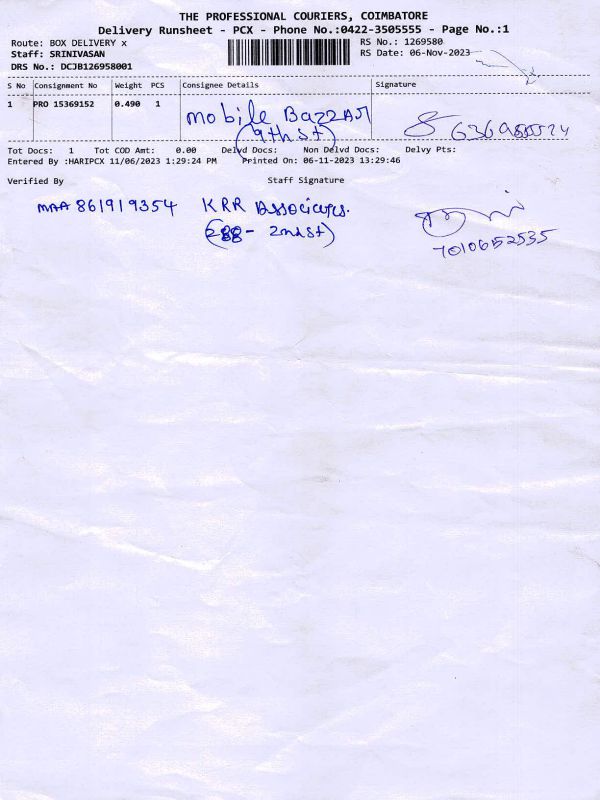 THE PROFESSIONAL COURIERS, COIMBATORE
Delivery Runsheet - PCX - Phone No.:0422-3505555 - Page No.:1
Route: BOX DELIVERY x
RS No.: 1269580
Staff: SRINIVASAN
RS Date: 06-Nov-2023
DRS No.: DCJB126958001
S No Consignment No Weight PCS Consignee Details Signature
1 PRO 15369152 0.490 1 mobile Bazzar
(9th st)
Tot Docs: 1 Tot COD Amt: 0.00 Delvd Docs: Non Delvd Docs: Delvy Pts:
Entered By :HARIPCX 11/06/2023 1:29:24 PM Printed On: 06-11-2023 13:29:46
Verified By Staff Signature
MAA 861919354 KRR Associates.
2nd st)
7010652535